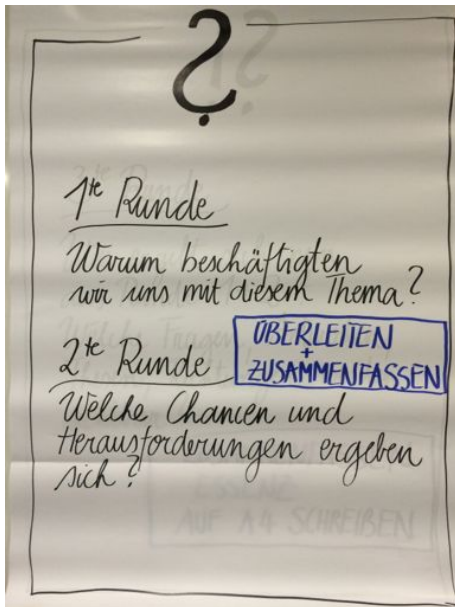 ?
1te Runde
Warum beschäftigten
wir uns mit diesem Thema?
ÜBERLEITEN
+
ZUSAMMENFASSEN
2te Runde
Welche Chancen und
Herausforderungen ergeben
sich?
ESSENZ
AUF A4 SCHREIBEN